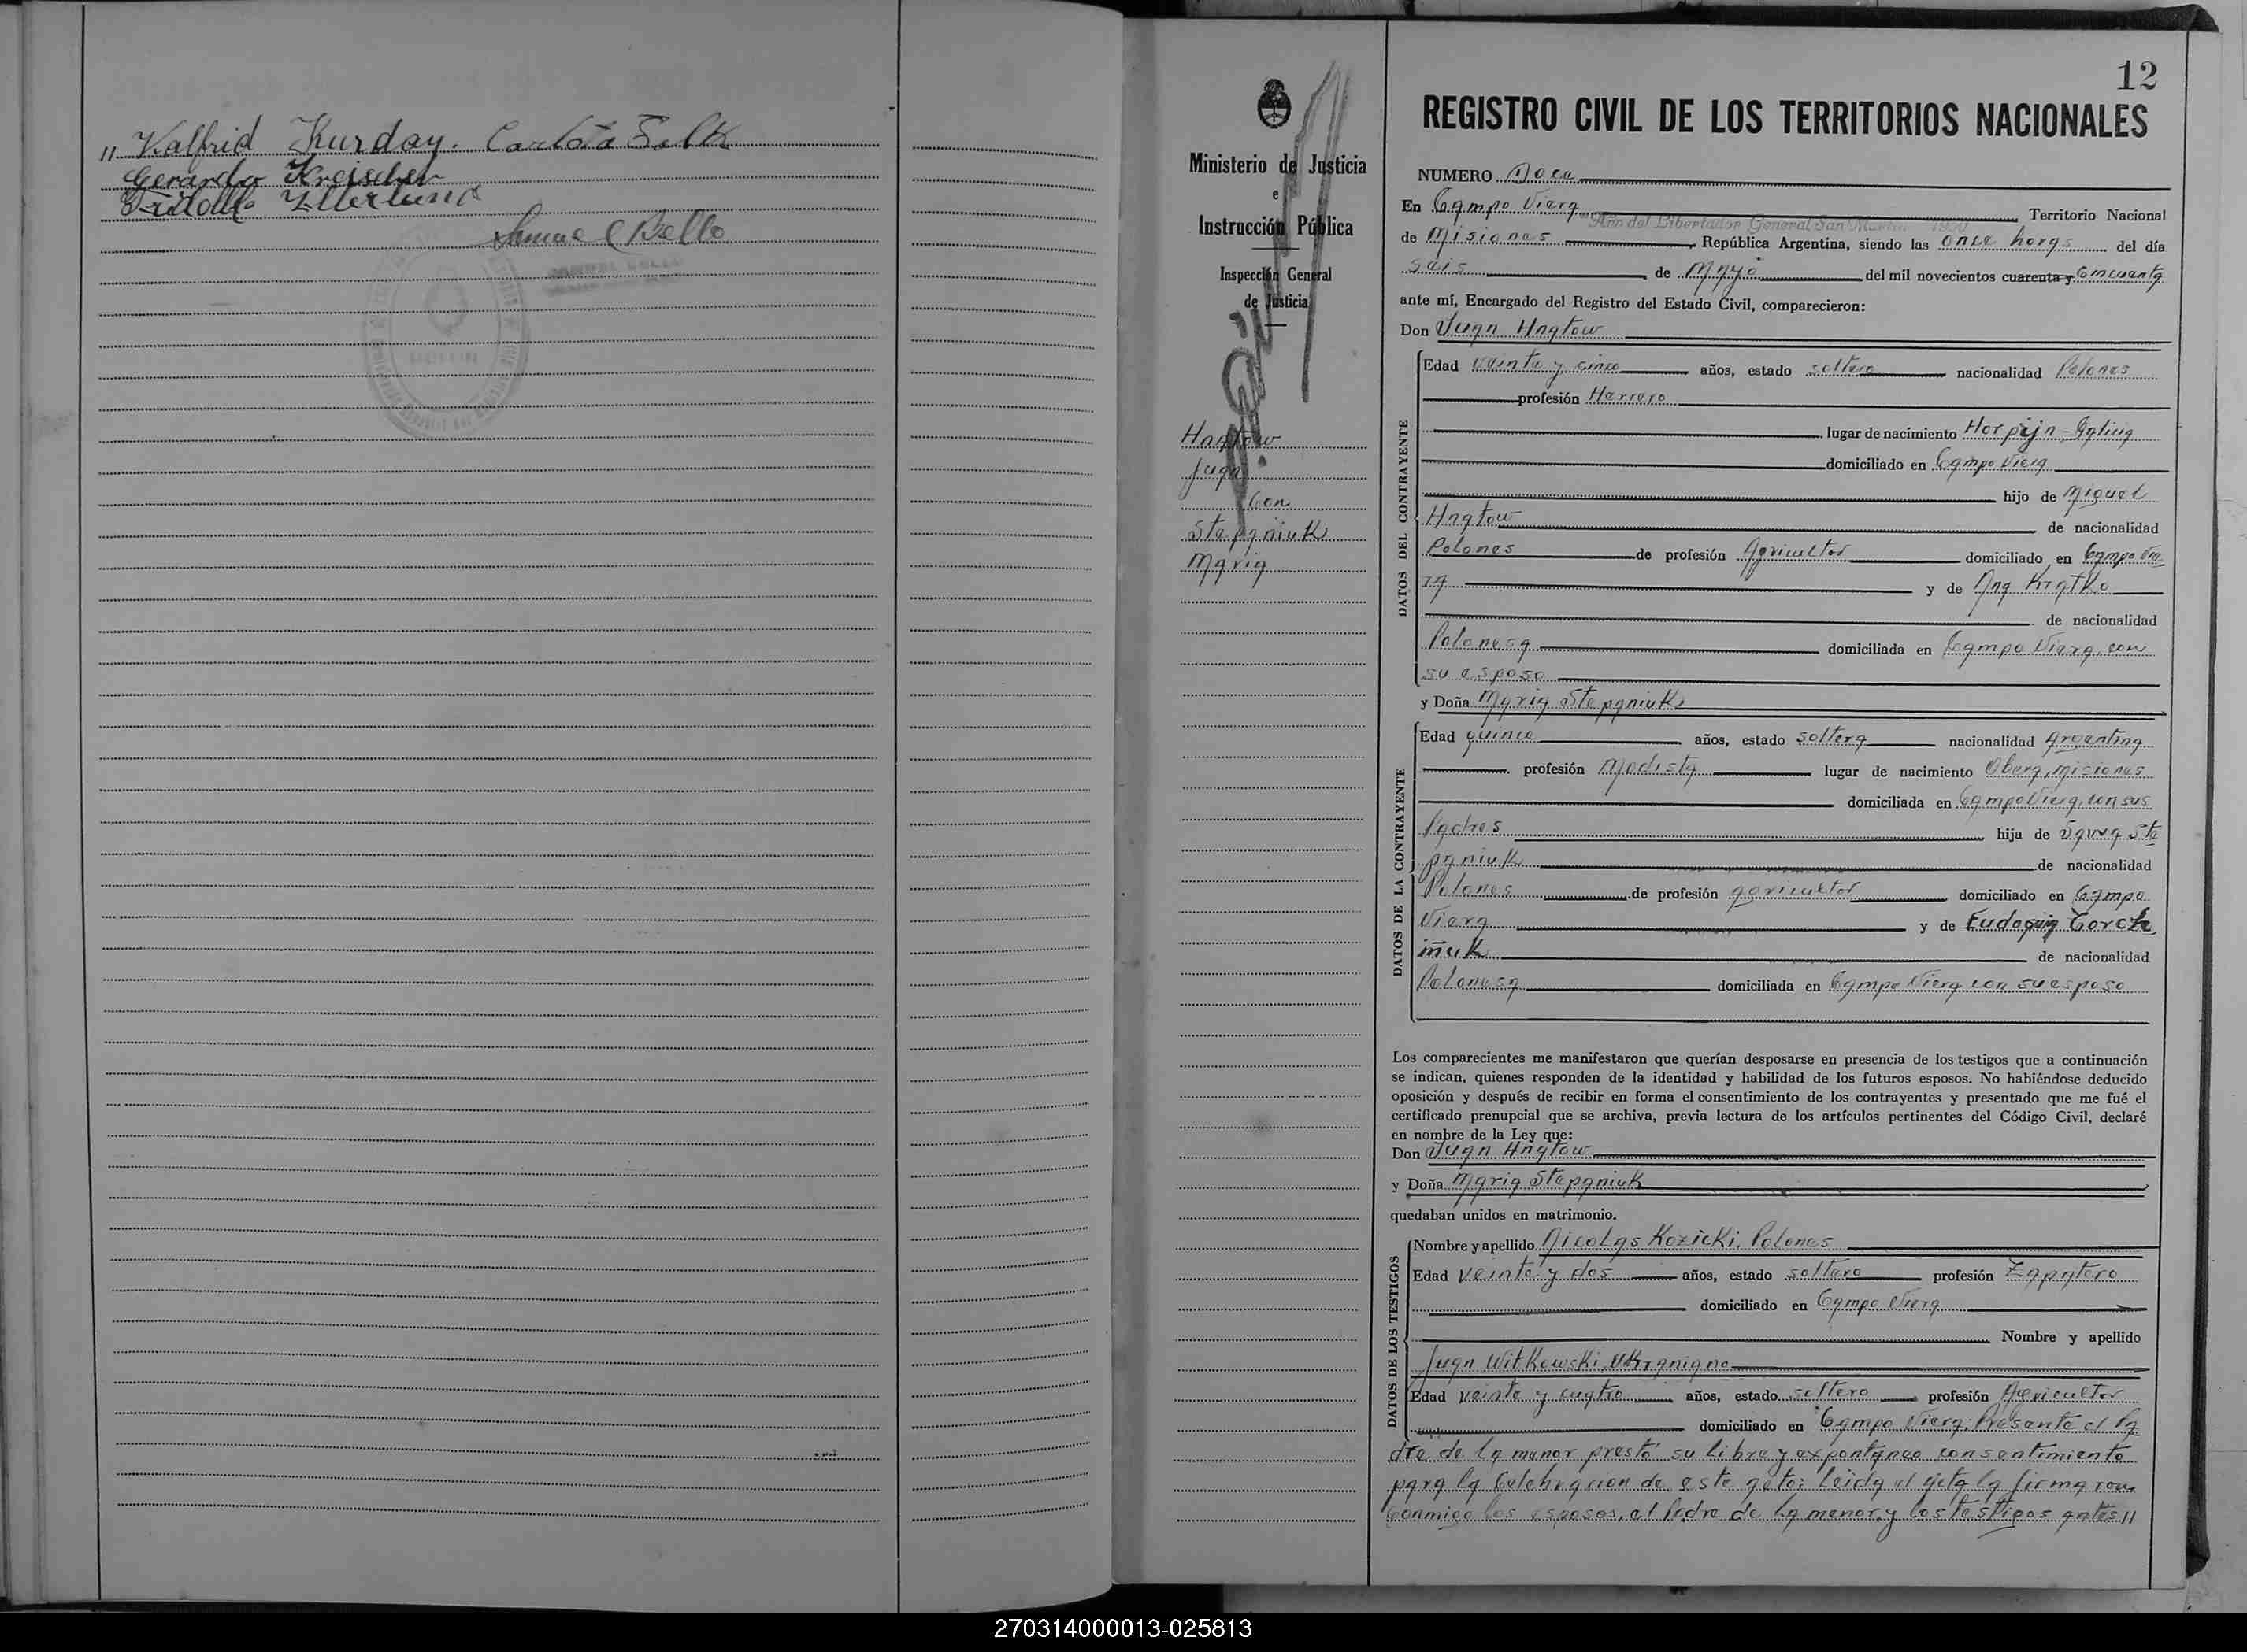 " Valfrid Kurday. Carlota Falk
Gerardo Kreischer
Samuel Bello
12
Ministerio de Justicia
e
Instrucción Pública
Inspección General
de Justicia
Hnatow
Juan
Con
Stepaniuk
Maria
REGISTRO CIVIL DE LOS TERRITORIOS NACIONALES
NUMERO Doce
En Campo Viera Territorio Nacional
"Año del Libertador General San Martin 1950"
de Misiones, República Argentina, siendo las once horas del día
seis de Mayo del mil novecientos cuarenta y Cincuenta
ante mí, Encargado del Registro del Estado Civil, comparecieron:
Don Juan Hnatow
DATOS DEL CONTRAYENTE
Edad veinte y cinco años, estado soltero nacionalidad Polones
profesión Herrero
lugar de nacimiento Horpijn-Galiia
domiciliado en Campo Viera
hijo de Miguel
Hnatow de nacionalidad
Polones de profesión Agricultor domiciliado en Campo Vie
ra y de Ana Kratko
de nacionalidad
Polonesa domiciliada en Campo Viera, con
su esposo
y Doña Maria Stepaniuk
DATOS DE LA CONTRAYENTE
Edad quince años, estado soltera nacionalidad Argentina
profesión Modista lugar de nacimiento Obera, Misiones
domiciliada en Campo Viera, con sus
Padres hija de Sawa Ste
paniuk de nacionalidad
Polones de profesión agricultor domiciliado en Campo
Viera y de Eudoquia Corch
iñuk de nacionalidad
Polonesa domiciliada en Campo Viera con su esposo
Los comparecientes me manifestaron que querían desposarse en presencia de los testigos que a continuación
se indican, quienes responden de la identidad y habilidad de los futuros esposos. No habiéndose deducido
oposición y después de recibir en forma el consentimiento de los contrayentes y presentado que me fué el
certificado prenupcial que se archiva, previa lectura de los artículos pertinentes del Código Civil, declaré
en nombre de la Ley que:
Don Juan Hnatow
y Doña Maria Stepaniuk
quedaban unidos en matrimonio.
DATOS DE LOS TESTIGOS
Nombre y apellido Nicolas Kozicki, Polones
Edad veinte y dos años, estado soltero profesión Zapatero
domiciliado en Campo Viera
Nombre y apellido
Juan Witkowski, Ukraniano
Edad veinte y cuatro años, estado soltero profesión Agricultor
domiciliado en Campo Viera; Presente el Pa
dre de la menor prestó su libre y expontaneo consentimiento
para la Celebracion de este acto; leida el acta la firmaron
conmigo los esposos, el Padre de la menor, y los testigos antes "
270314000013-025813